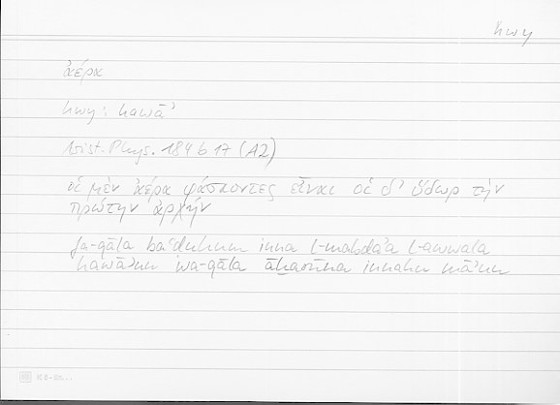 hwy
ἀέρα
hwy: hawāʾ
Arist. Phys. 184 b 17 (A2)
οἱ μὲν ἀέρα φάσκοντες εἶναι οἱ δ' ὕδωρ τὴν
πρώτην ἀρχήν
fa-qāla baʿḍuhum inna l-mabdaʾa l-awwala
hawāʾun wa-qāla āḫarūna innahu māʾun